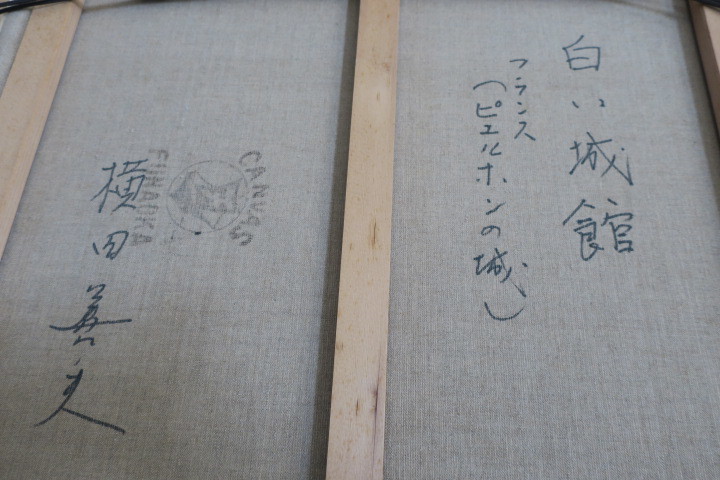 白い城館
フランス
(ピエルホンの城)
横田善夫
CANVAS
FUNAOKA